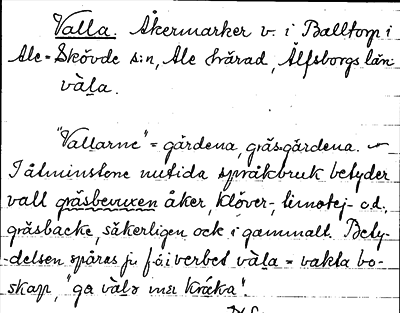 Valla. Åkermarker v. i Balltorp i
Ale-Skövde s:n, Ale härad, Älfsborgs län
väla.
"Vallarne" = gärdena, gräsgärdena. –
I åtminstone nutida språkbruk betyder
vall gräsbevuxen åker, klöver-, timotej- o.d.,
gräsbacke, säkerligen ock i gammalt. Bety-
-delsen spåras ju få i verbet väla = vakta bo-
skap, "ga väla